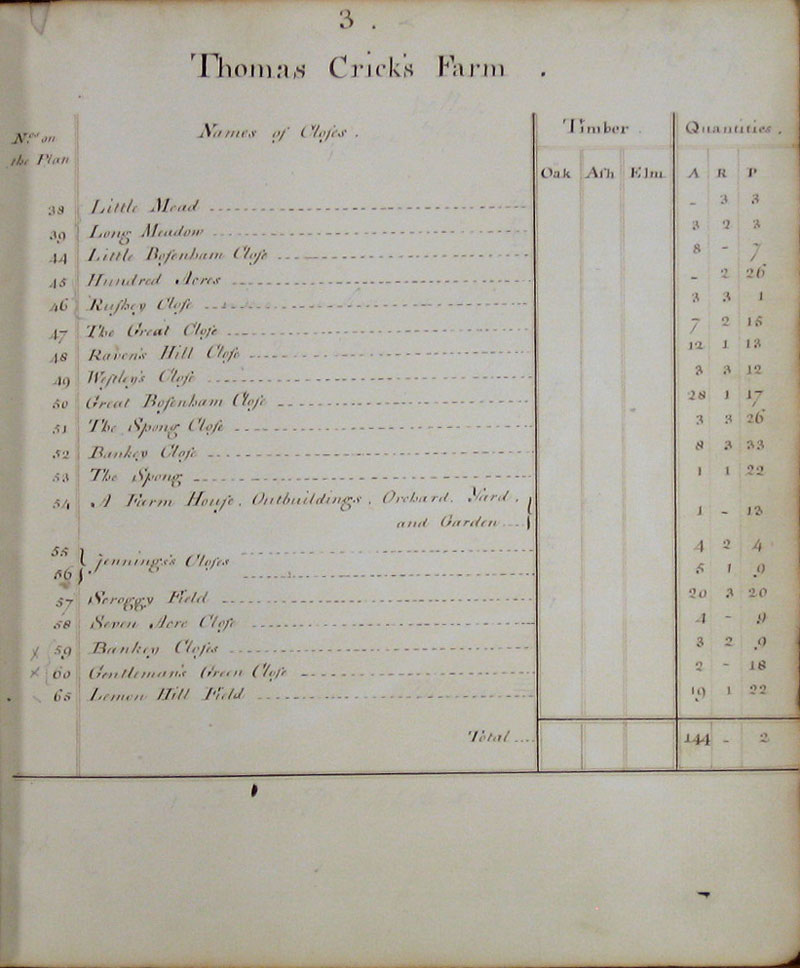 3 .
Thomas Crick's Farm .
N.os on the Plan Names of Cloſes . Timber . Quantities .
Oak Aſh Elm A R P
38 Little Mead - 3 3
39 Long Meadow 3 2 3
44 Little Boſenham Cloſe 8 - 7
45 Hundred Acres - 2 26
46 Ruſhey Cloſe 3 3 1
47 The Great Cloſe 7 2 15
48 Raven's Hill Cloſe 12 1 13
49 Weſtley's Cloſe 3 3 12
50 Great Boſenham Cloſe 28 1 17
51 The Spong Cloſe 3 3 26
52 Bankey Cloſe 8 3 33
53 The Spong 1 1 22
54 A Farm Houſe . Outbuildings . Orchard . Yard .
and Garden 1 - 13
55 4 2 4
Jennings's Cloſes
56 5 1 9
57 Scroggy Field 20 3 20
58 Seven Acre Cloſe 4 - 9
x 59 Bankey Cloſes 3 2 9
x 60 Gentleman's Green Cloſe 2 - 18
65 Lemen Hill Field 19 1 22
Total 144 - 2